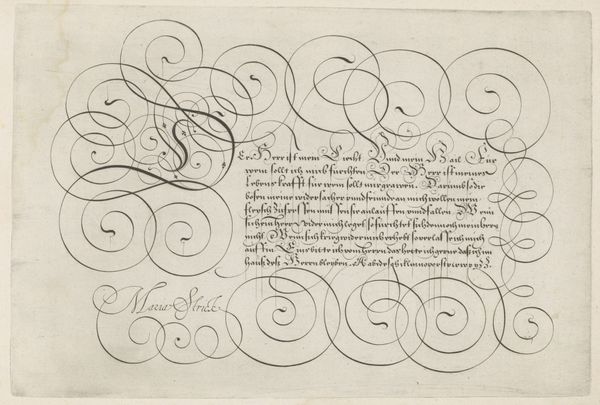 Er Herr ist mein Liecht Vnnd mein Hail Für
wem sollt ich mich fürchten Der Herr ist meines
Lebens krafft für wem sollt mir grawen. Darumb so die
bösen meine widersacher vnnd feinde an mich wollen mein
fleysch zufressen müssen sie anlauffen vnnd fallen Wenn
sich ein heer wider mich leget so fürchtet sich dennoch mein hertz
nicht Wenn sich krieg wider mich erhebt so verlaß ich mich
auff Jn Eins bitte ich vom herren das hette ich gerne das ich im
hauß deß Herren bleyben. A a b c d e f g h i l l m n o p
Maria Strick